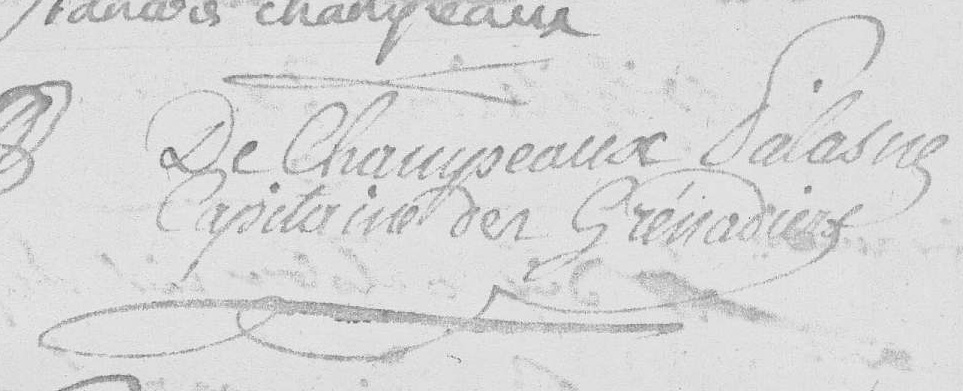 champeaux
De Champeaux Palasne
Capitaine des Grénadiers